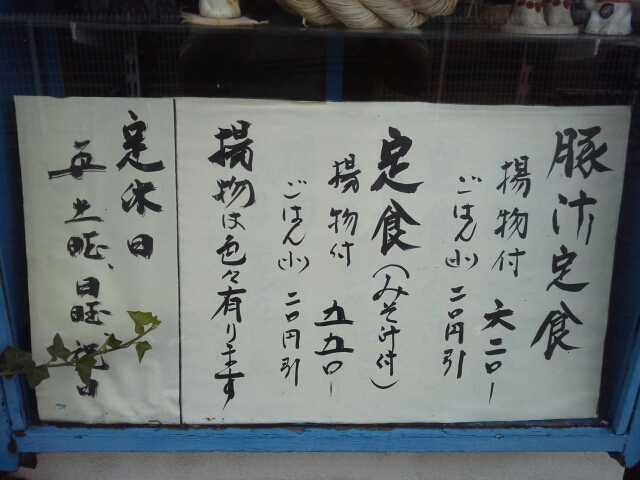 豚汁定食
揚物付 六二〇ー
ごはん(小) 二〇円引
定食(みそ汁付)
揚物付 五五〇ー
ごはん(小) 二〇円引
揚物は色々有ります
定休日
毎土曜、日曜、祝日